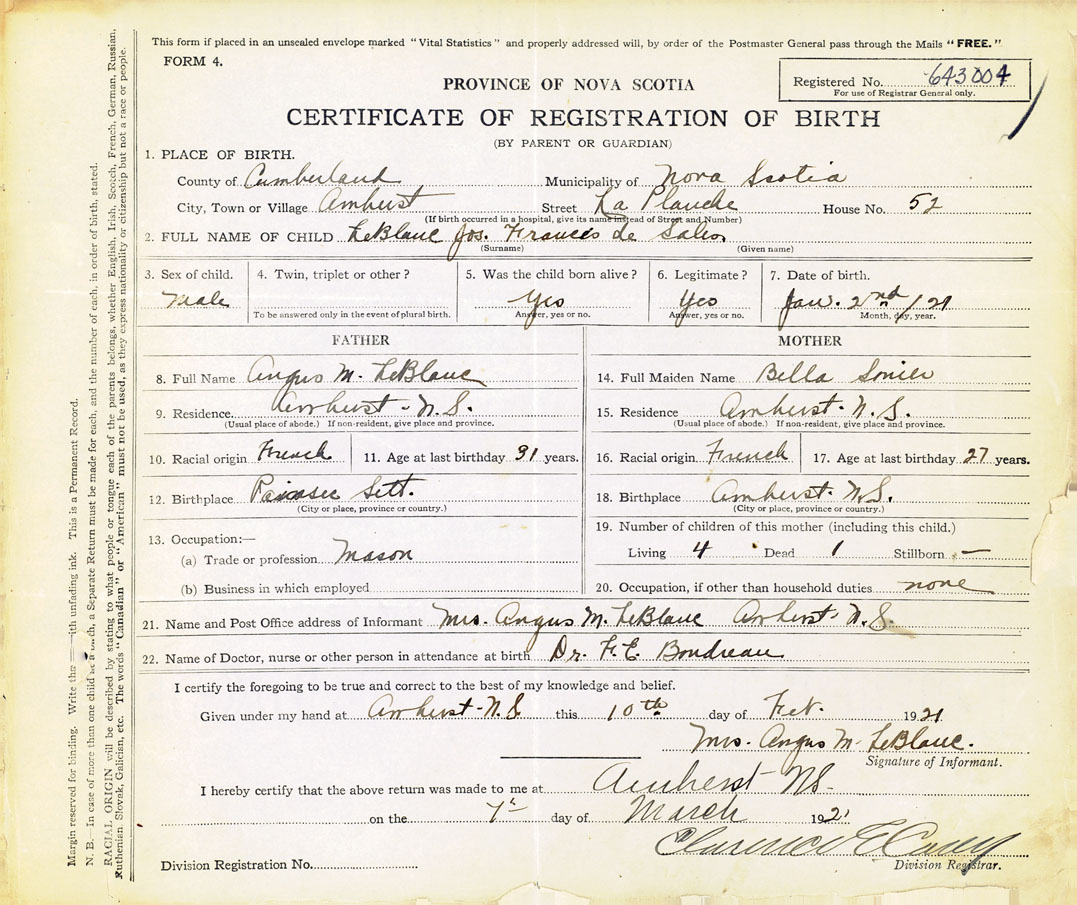 This form if placed in an unsealed envelope marked "Vital Statistics" and properly addressed will, by order of the Postmaster General pass through the Mails "FREE."
FORM 4.
Registered No. 643004
For use of Registrar General only.
PROVINCE OF NOVA SCOTIA
CERTIFICATE OF REGISTRATION OF BIRTH
(BY PARENT OR GUARDIAN)
1. PLACE OF BIRTH.
County of Cumberland Municipality of Nova Scotia
City, Town or Village Amherst Street La Planche House No. 52
(If birth occurred in a hospital, give its name instead of Street and Number)
2. FULL NAME OF CHILD LeBlanc Jos. Frances de Sales
(Surname) (Given name)
3. Sex of child. 4. Twin, triplet or other? 5. Was the child born alive? 6. Legitimate? 7. Date of birth.
Male Yes Yes Jan. 2nd/21
To be answered only in the event of plural birth. Answer, yes or no. Answer, yes or no. Month, day, year.
FATHER
8. Full Name Angus M. LeBlanc
9. Residence. Amherst - N.S.
(Usual place of abode.) If non-resident, give place and province.
10. Racial origin French 11. Age at last birthday 31 years.
12. Birthplace Sett.
(City or place, province or country.)
13. Occupation:—
(a) Trade or profession Mason
(b) Business in which employed
MOTHER
14. Full Maiden Name Bella
15. Residence Amherst - N.S.
(Usual place of abode.) If non-resident, give place and province.
16. Racial origin French 17. Age at last birthday 27 years.
18. Birthplace Amherst - N.S.
(City or place, province or country.)
19. Number of children of this mother (including this child.)
Living 4 Dead 1 Stillborn —
20. Occupation, if other than household duties none
21. Name and Post Office address of Informant Mrs. Angus M. LeBlanc Amherst - N.S.
22. Name of Doctor, nurse or other person in attendance at birth Dr. F.E. Boudreau
I certify the foregoing to be true and correct to the best of my knowledge and belief.
Given under my hand at Amherst - N.S. this 10th day of Feb. 1921
Mrs. Angus M. LeBlanc.
Signature of Informant.
I hereby certify that the above return was made to me at Amherst NS-
on the 7th day of March 1921
Clarence E
Division Registrar.
Division Registration No.
Margin reserved for binding. Write this —ith unfading ink. This is a Permanent Record.
N. B.—In case of more than one child at a birth, a Separate Return must be made for each, and the number of each, in order of birth, stated.
RACIAL ORIGIN will be described by stating to what people or tongue each of the parents belongs, whether English, Irish, Scotch, French, German, Russian,
Ruthenian, Slovak, Galician, etc. The words "Canadian" or "American" must not be used, as they express nationality or citizenship but not a race or people.